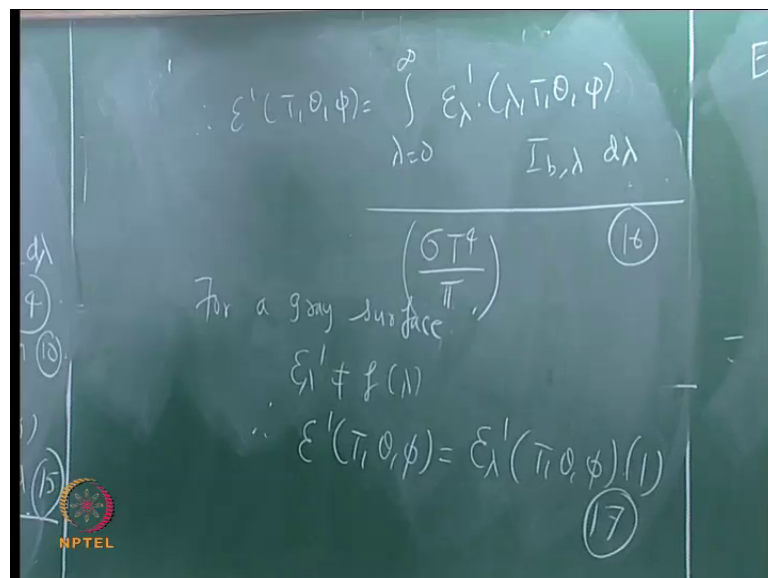 ∞
∴ ε'(T,θ,φ) = ∫ ε_λ'.(λ,T,θ,φ)
λ=0 I_b,λ dλ
(σT⁴/π) (16)
For a gray surface.
ε_λ' ≠ f(λ)
∴ ε'(T,θ,φ) = ε_λ'(T,θ,φ)(1)
(17)
dλ
(10)
(15)
E
NPTEL